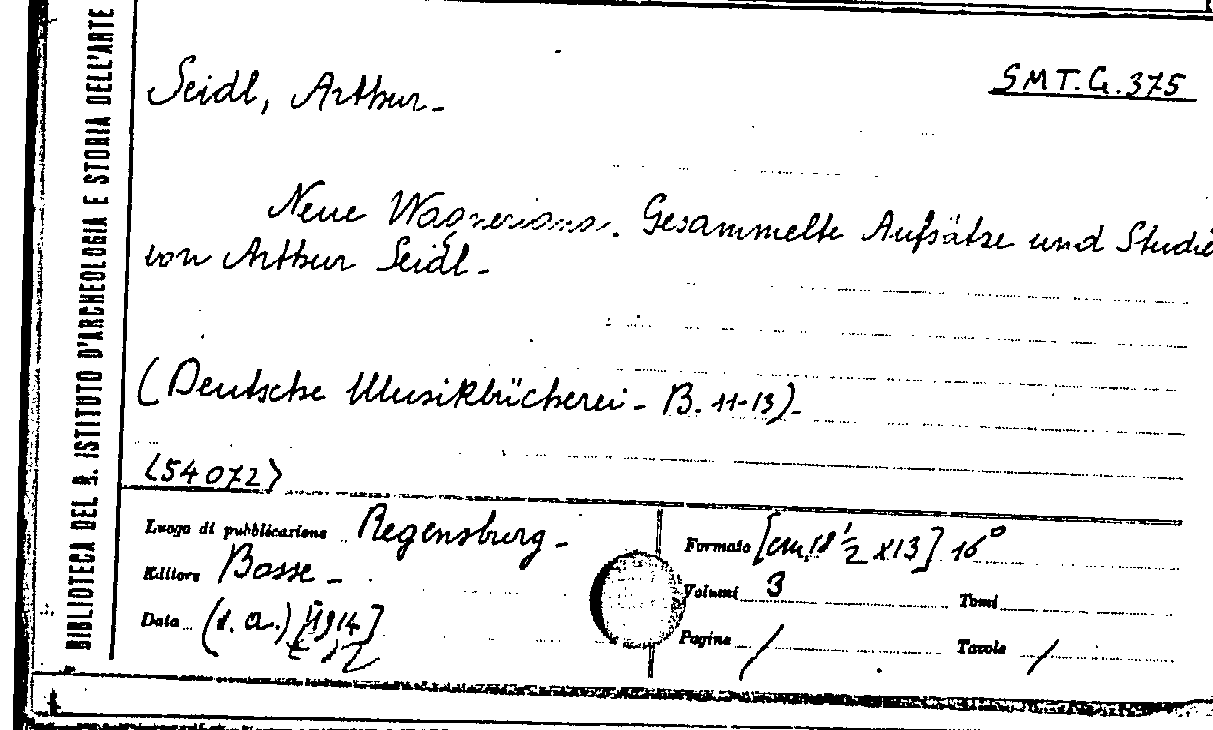 BIBLIOTECA DEL R. ISTITUTO D'ARCHEOLOGIA E STORIA DELL'ARTE
Seidl, Arthur-
SMT.G.375
Neue Wagneriana. Gesammelte Aufsätze und Studie
von Arthur Seidl-
(Deutsche Musikbücherei- B. 11-13)-
(54072)
Luogo di pubblicazione Regensburg-
Editore Bosse-
Data (s.a.) [1914]
Formato [cm,18 1/2 x13] 16°
Volumi 3
Tomi
Pagine /
Tavole /